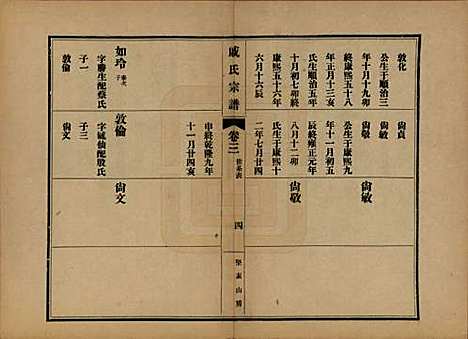 敦化
公生于順治三
年十月十九卯
終康熙五十八
年十月十三亥
氏生順治五年
十月初七卯終
康熙五十六年
六月十六辰
尙貞
尙敏
尙敬
公生于康熙九
年十一月初五
辰終雍正元年
八月十二卯
氏生于康熙十
二年七月廿四
尙敏
尙敬
戚氏宗譜
卷三
四
山房
如玲
子
字勝生配蔡氏
子一
敦倫
申終乾隆九年
十一月廿四亥
敦倫
字咸仙配殷氏
子三
尙文
尙文